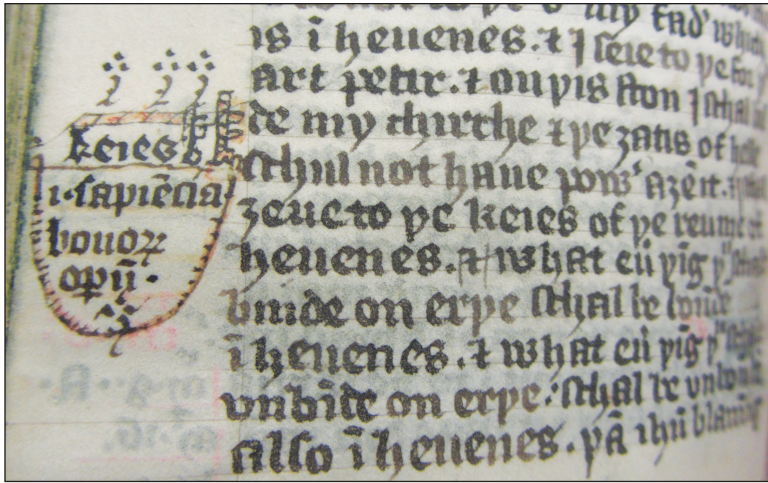 keies
i·sapiēcia
bonoꝝ
opū·
my fad'
is ī heuenes. ⁊ I seie to þe
art petir. ⁊ on þis ston I schal
de my chirche ⁊ þe ȝatis of helle
schul not haue pow' aȝēit.
ȝeue to þe keies of þe reume of
heuenes. ⁊ what eū þīg þ'
binde on erþe schal be boūde
ī heuenes. ⁊ what eū þīg þ'
vnbīde on erþe: schal be
also ī heuenes. þā ihū